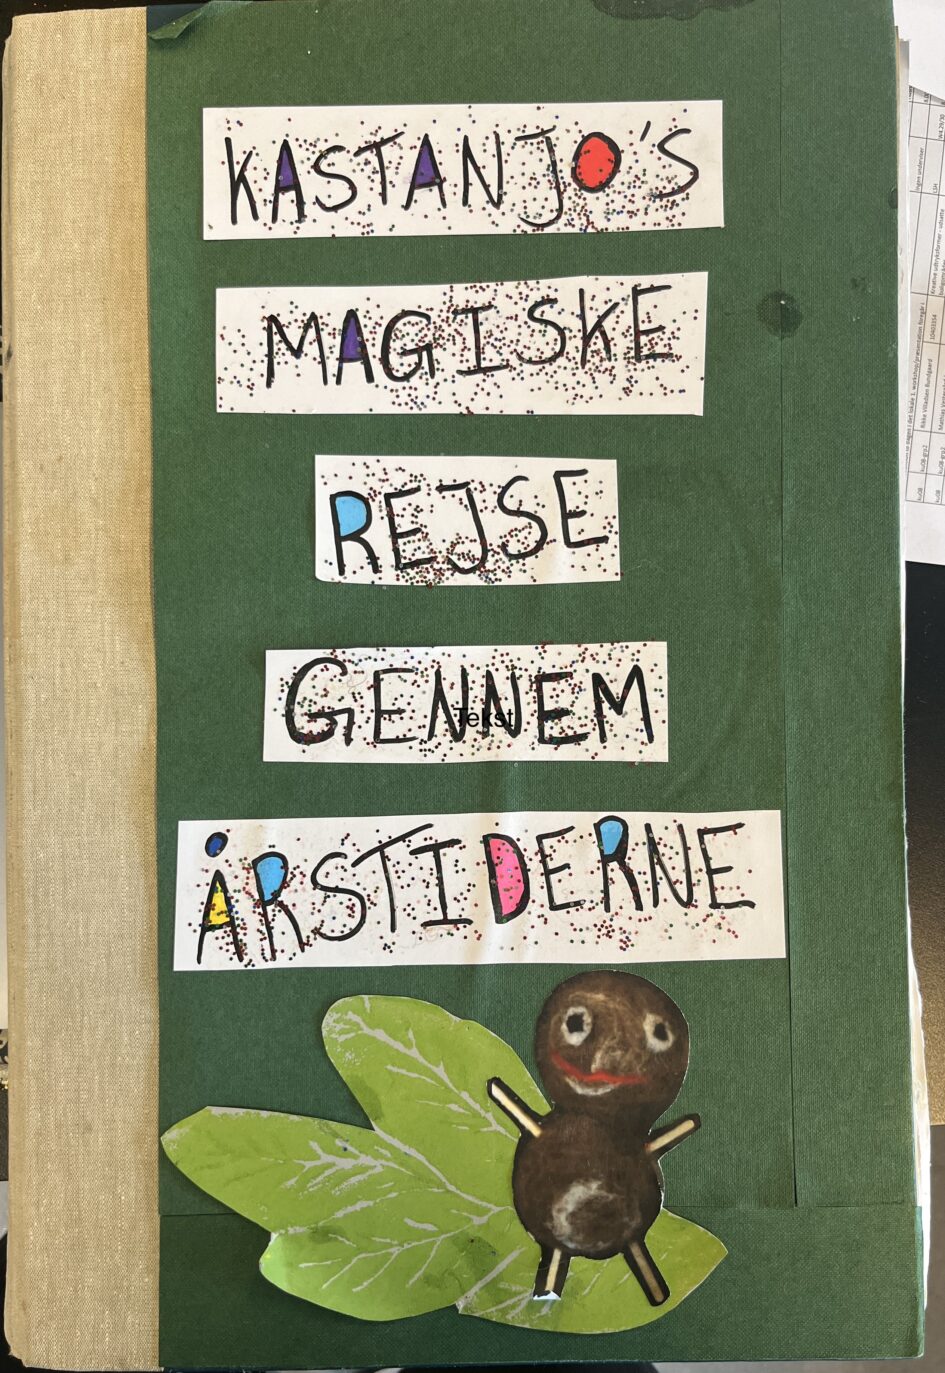 KASTANJO'S
MAGISKE
REJSE
GENNEM
Tekst
ÅRSTIDERNE